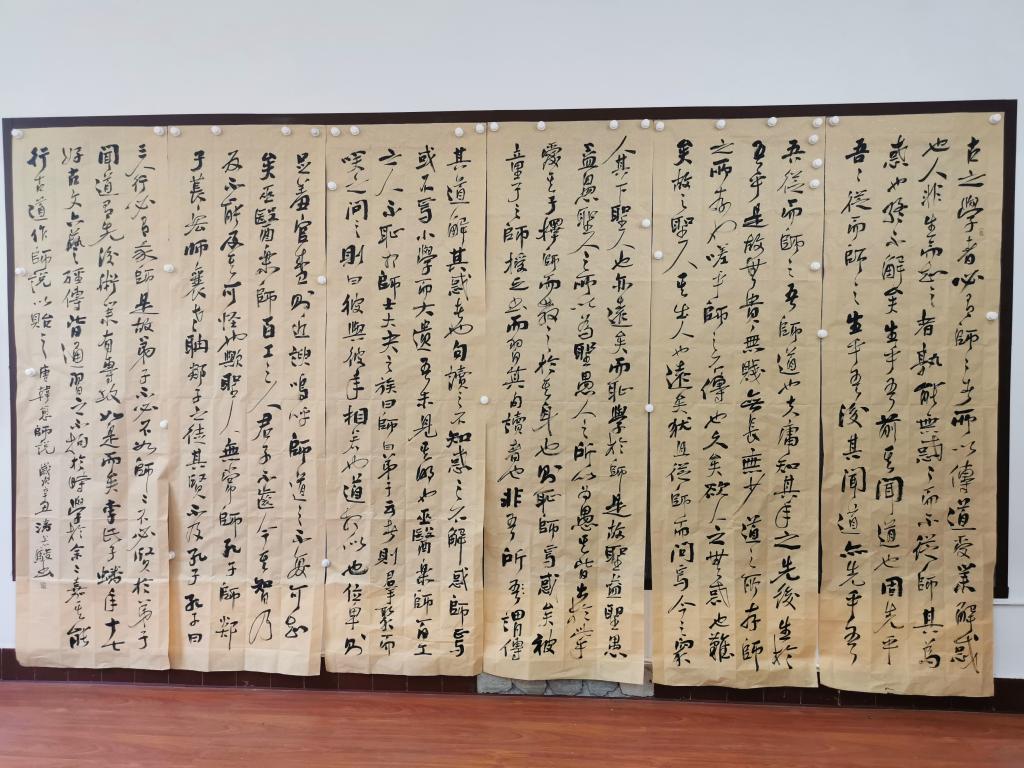 古之學者必有師〻者所以傳道受業解惑
也人非生而知之者孰能無惑〻而不從師其為
惑也終不解矣生乎吾前其聞道也固先乎
吾〻從而師之生乎吾後其聞道亦先乎吾
吾從而師之吾師道也夫庸知其年之先後生於
吾乎是故無貴無賤無長無少道之所存師
之所存也嗟乎師之不傳也久矣欲人之無惑也難
矣故之聖人其出人也遠矣猶且從師而問焉今之眾
人其下聖人也亦遠矣而恥學於師是故聖益聖愚
益愚聖人之所以為聖愚人之所以為愚其皆出於此乎
愛其子擇師而教之於其身也則恥師焉惑矣彼
童子之師授之書而習其句讀者也非吾所謂傳
其道解其惑者也句讀之不知惑之不解或師焉
或不焉小學而大遺吾未見其明也巫醫樂師百工
之人不恥相師士大夫之族曰師曰弟子云者則羣聚而
笑之問之則曰彼與彼年相若也道相似也位卑則
足羞官盛則近諛嗚呼師道之不復可知
矣巫醫樂師百工之人君子不齒今其智乃
反不能及其可怪也歟聖人無常師孔子師郯
子萇宏師襄老聃郯子之徒其賢不及孔子孔子曰
三人行必有我師是故弟子不必不如師〻不必賢於弟子
聞道有先後術業有專攻如是而矣李氏子蟠年十七
好古文六藝經傳皆通習之不拘於時學於余〻嘉其能
行古道作師說以貽之 唐韓愈師說 歲次辛丑